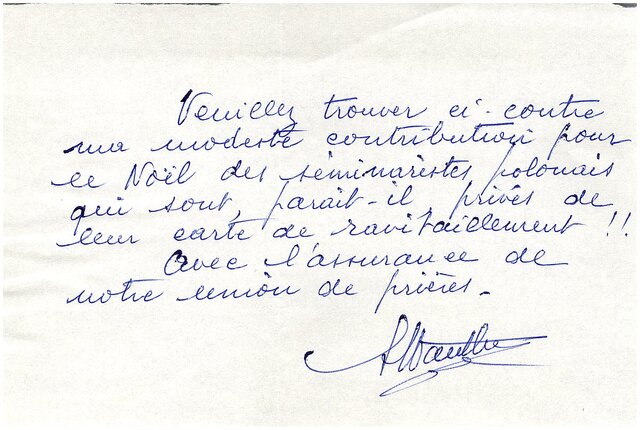 Veuillez trouver ci-contre
ma modeste contribution pour
le Noël des séminaristes polonais
qui sont, paraît-il, privés de
leur carte de ravitaillement !!
Avec l'assurance de
notre union de prières.